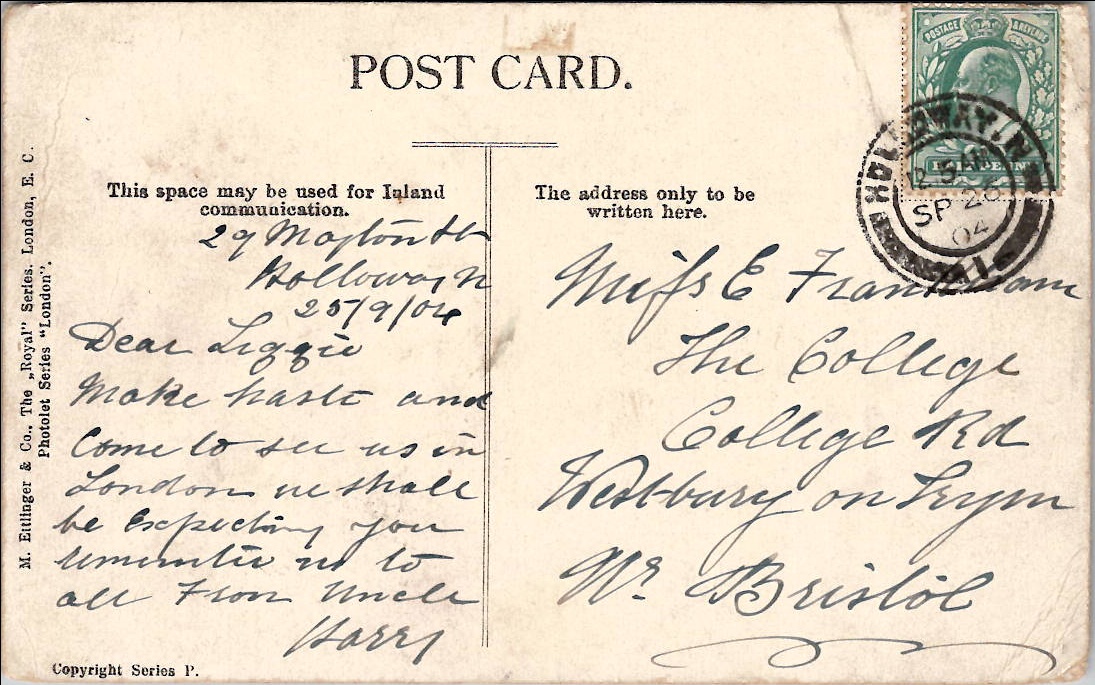 POST CARD.
This space may be used for Inland
communication.
The address only to be
written here.
POSTAGE & REVENUE
HALFPENNY
HOLLOWAY. N
12 5 AM
SP 26
04
29 St
Holloway N
25/9/04
Dear Lizzie
Make haste and
Come to see us in
London we shall
be Expecting you
remember us to
all From Uncle
Harry
Miss E Frankham
The College
College Rd
Westbury on Trym
Nr. Bristol
M. Ettlinger & Co., The „Royal" Series. London, E. C.
Photolet Series "London".
Copyright Series P.